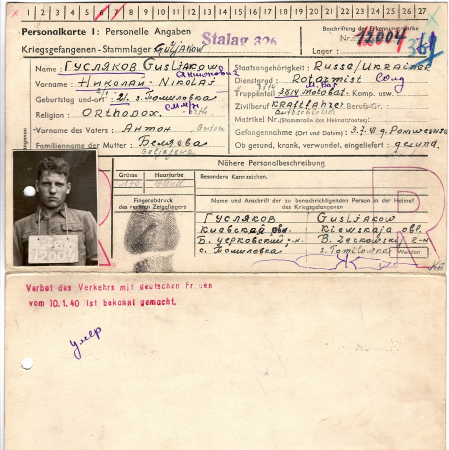 1 2 3 4 5 6 7 8 9 10 11 12 13 14 15 16 17 18 19 20 21 22 23 24 25 26 27
Personalkarte I: Personelle Angaben
Beschriftung der Erkennungsmarke
Kriegsgefangenen-Stammlager: Stalag 326
Nr. 12004
Lager:
Name: Гусляков Gusljakow
Staatsangehörigkeit: Russe/Ukrainer
Vorname: Николай Nikolai
Dienstgrad: Rotarmist Солд
Geburtstag und -ort: 21. s. Томиловка
Truppenteil: Motobat. Komp. usw.
Religion: Orthodox.
Zivilberuf: Kraftfahrer Berufs-Gr.
Matrikel Nr. (Stammrolle des Heimatstaates)
Vorname des Vaters: Антон Anton
Gefangennahme (Ort und Datum):
Familienname der Mutter: Беляева
Ob gesund, krank, verwundet, eingeliefert: gesund.
Beljajewa
Nähere Personalbeschreibung
Grösse Haarfarbe Besondere Kennzeichen:
170 blond
Fingerabdruck
des rechten Zeigefingers
Name und Anschrift der zu benachrichtigenden Person in der Heimat
des Kriegsgefangenen
Гусляков Gusljakow
Киевская обл. Kiewskaja obl.
Б. Церковский р-н. B. Zerkowski r-n
с. Томиловка s. Tomilowka
R R
Verbot des Verkehrs mit deutschen Frauen
vom 10.1.40 ist bekannt gemacht.
умер